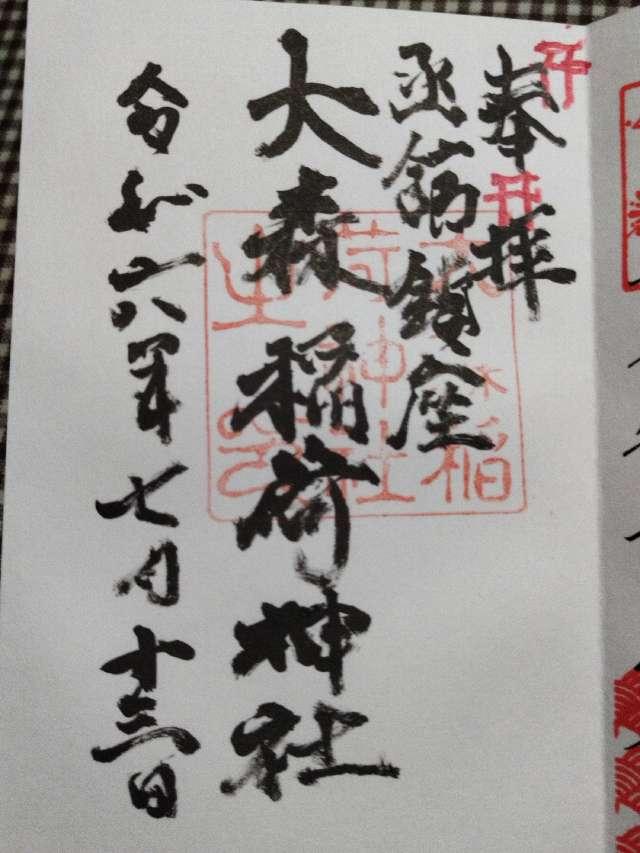 奉拝
函館鎮座
大森稲荷神社
令和六年七月十三日
大森稲
荷神社
之印